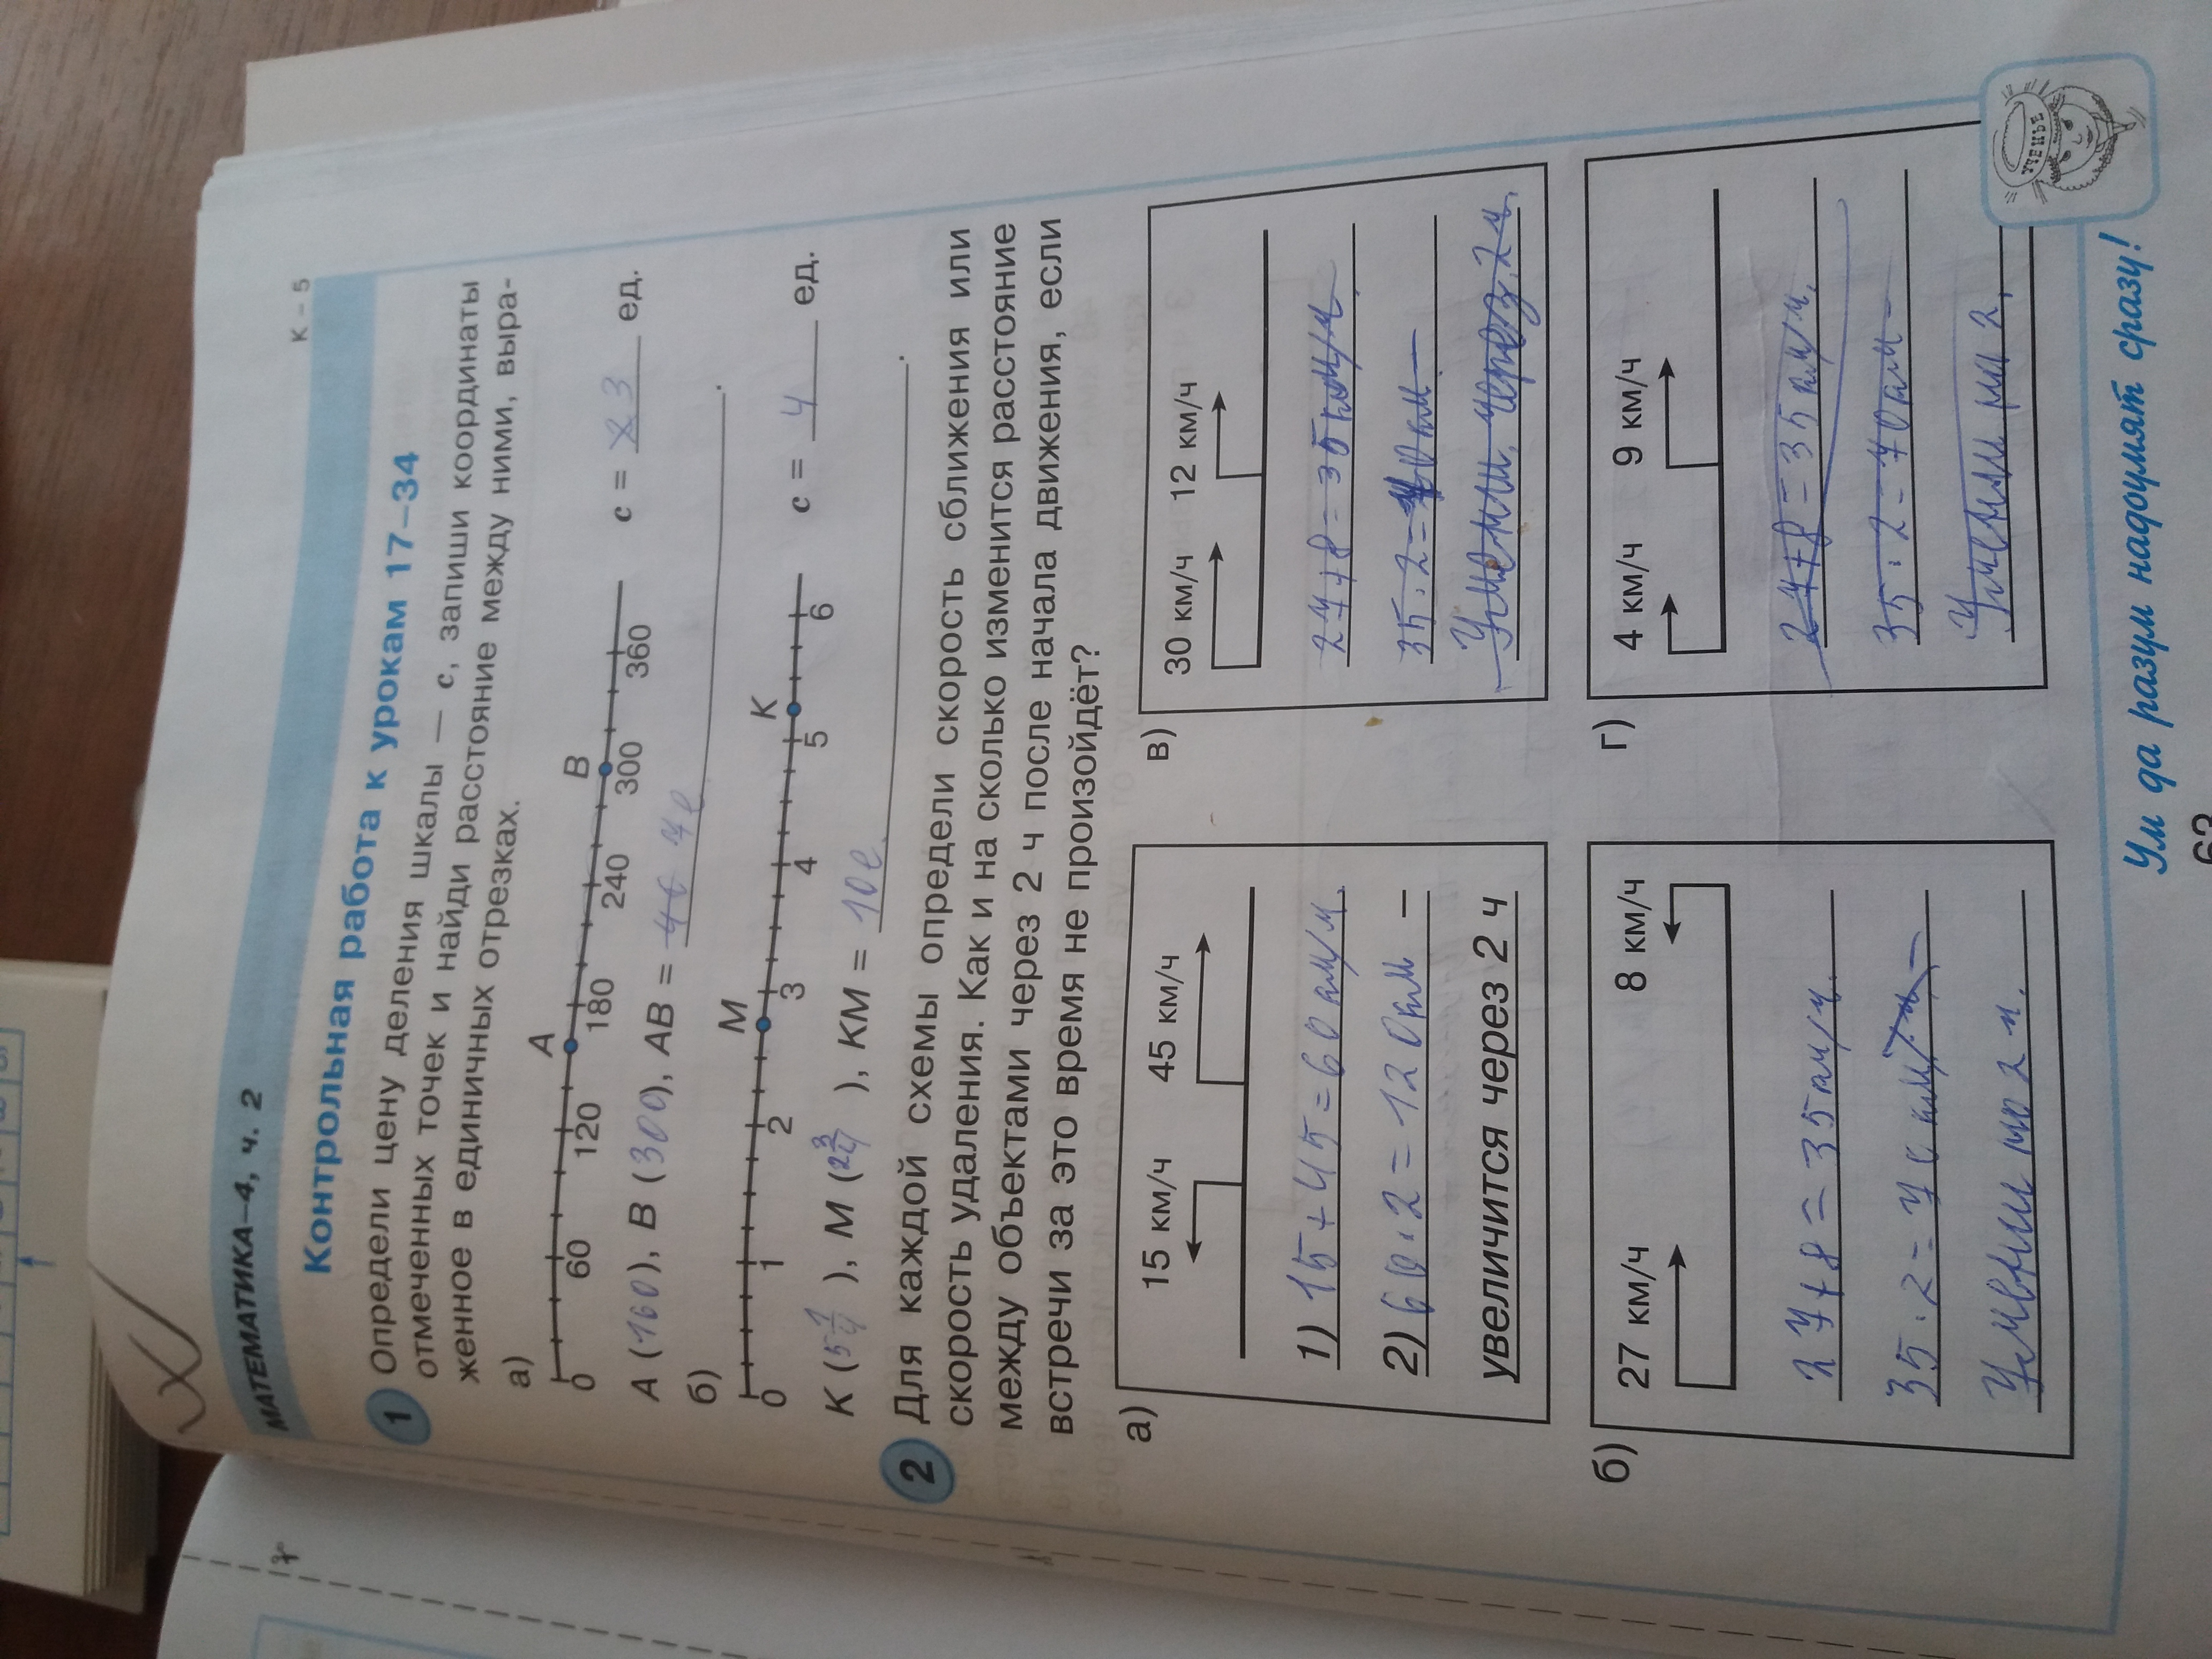 МАТЕМАТИКА–4, ч. 2
К – 5
Контрольная работа к урокам 17–34
1 Определи цену деления шкалы — с, запиши координаты
отмеченных точек и найди расстояние между ними, выра-
женное в единичных отрезках.
а)
A B
0 60 120 180 240 300 360
c = 3 ед.
A (160), B (300), AB =
б)
M K
0 1 2 3 4 5 6
c = 4 ед.
K (5 1/4), M (2 3/4), KM = 10е.
2 Для каждой схемы определи скорость сближения или
скорость удаления. Как и на сколько изменится расстояние
между объектами через 2 ч после начала движения, если
встречи за это время не произойдёт?
а)
15 км/ч 45 км/ч
1) 15 + 45 = 60 км/ч
2) 60 · 2 = 120 км –
увеличится через 2 ч
б)
27 км/ч 8 км/ч
27 + 8 = 35 км/ч.
35 · 2 =
2 ч.
в)
30 км/ч 12 км/ч
27 + 8 = 35 км/ч
35 · 2 =
через 2 ч.
г)
4 км/ч 9 км/ч
27 + 8 = 35 км/ч.
35 · 2 = 70 км –
на 2
УЧЕНЬЕ
Ум да разум надоумят сразу!
63